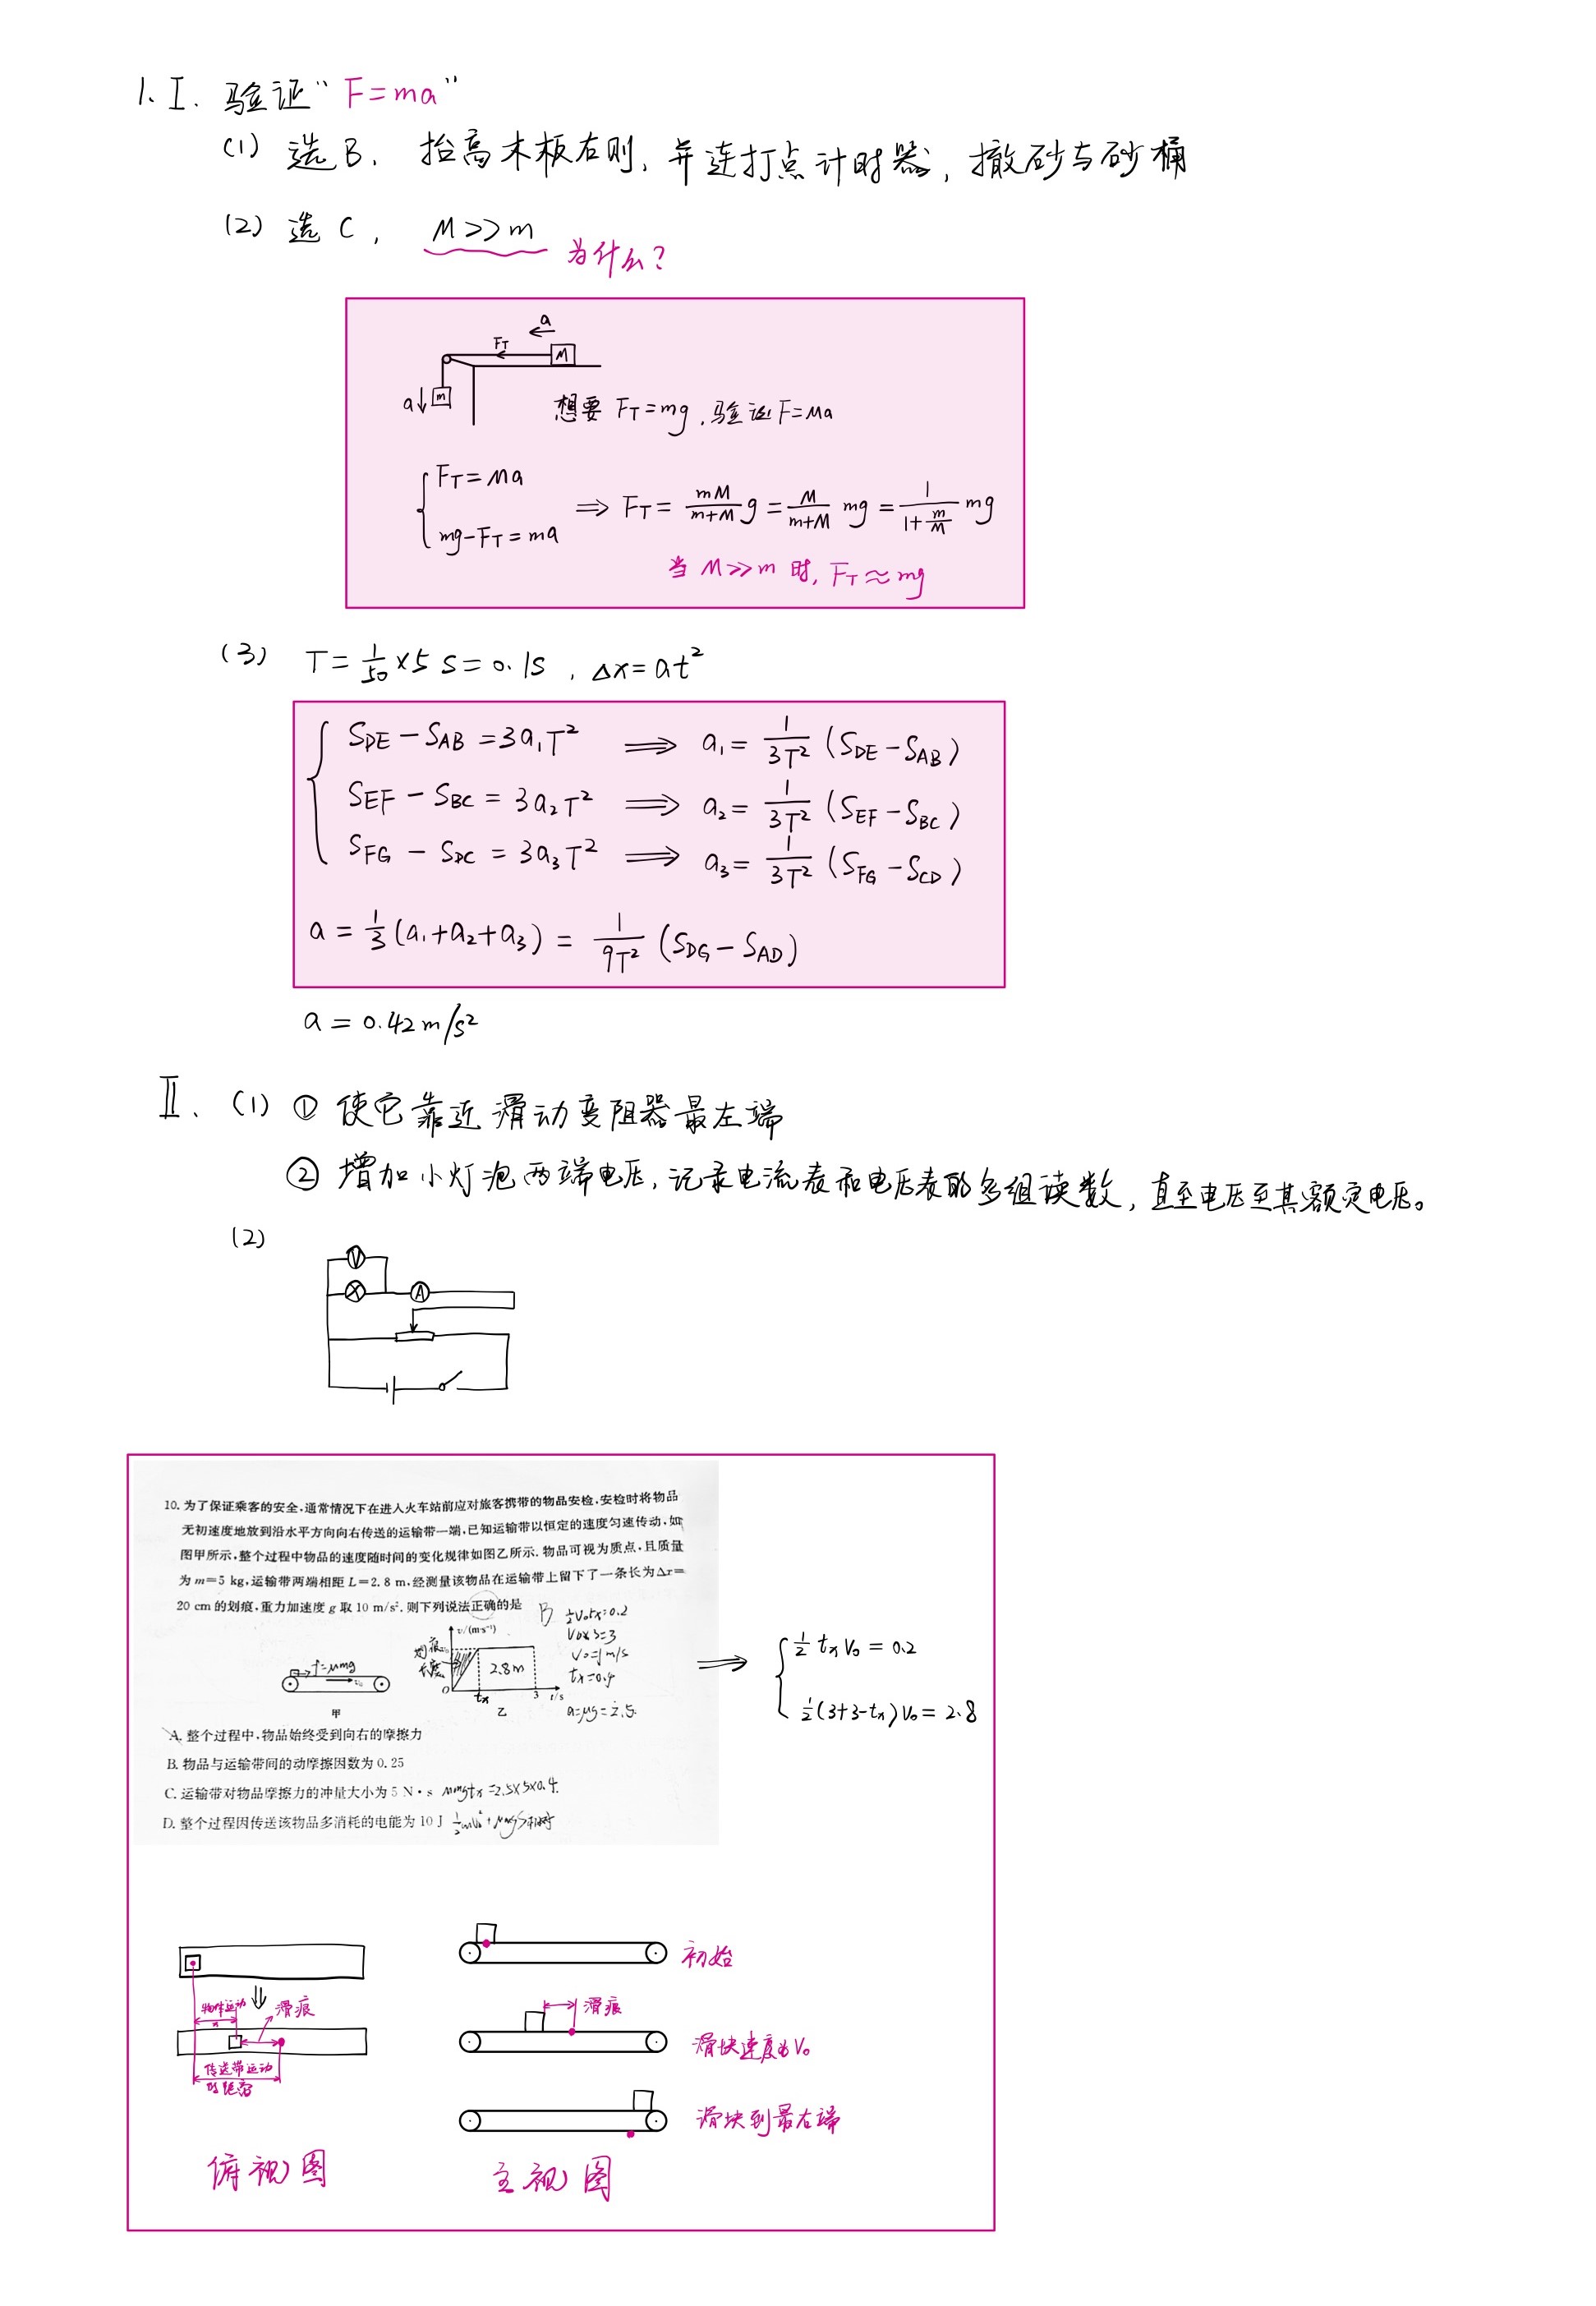 1. I. 验证“F=ma”
(1) 选B. 抬高木板右则, 并连打点计时器, 撤砂与砂桶
(2) 选 C, M>>m 为什么?
a
F_T
M
a↓ m
想要 F_T=mg, 验证F=Ma
{ F_T=Ma
mg-F_T=ma
⇒ F_T = \frac{mM}{m+M}g = \frac{M}{m+M}mg = \frac{1}{1+\frac{m}{M}}mg
当 M>>m 时, F_T≈mg
(3) T=\frac{1}{50}×5 s=0.1s, Δx=at²
{ S_DE - S_AB = 3a₁T² ⟹ a₁ = \frac{1}{3T²}(S_DE - S_AB)
S_EF - S_BC = 3a₂T² ⟹ a₂ = \frac{1}{3T²}(S_EF - S_BC)
S_FG - S_DC = 3a₃T² ⟹ a₃ = \frac{1}{3T²}(S_FG - S_CD)
a = \frac{1}{3}(a₁+a₂+a₃) = \frac{1}{9T²}(S_DG - S_AD)
a = 0.42 m/s²
II. (1) ① 使它靠近滑动变阻器最左端
② 增加小灯泡两端电压, 记录电流表和电压表的多组读数, 直至电压至其额定电压。
(2)
V
A
10. 为了保证乘客的安全,通常情况下在进入火车站前应对旅客携带的物品安检,安检时将物品
无初速度地放到沿水平方向向右传送的运输带一端,已知运输带以恒定的速度匀速传动,如
图甲所示,整个过程中物品的速度随时间的变化规律如图乙所示.物品可视为质点,且质量
为 m=5 kg,运输带两端相距 L=2.8 m,经测量该物品在运输带上留下了一条长为Δx=
20 cm 的划痕,重力加速度 g 取 10 m/s².则下列说法正确的是
B
½v₀tx=0.2
v₀×3=3
v₀=1m/s
tx=0.4
a=μg=2.5.
f=μmg
v₀
甲
划痕
长度
v/(m·s⁻¹)
2.8m
O tx 3 t/s
乙
⟹ { ½ tx v₀ = 0.2
½(3+3-tx)v₀ = 2.8
A. 整个过程中,物品始终受到向右的摩擦力
B. 物品与运输带间的动摩擦因数为 0.25
C. 运输带对物品摩擦力的冲量大小为 5 N·s μmgtx=2.5×5×0.4.
D. 整个过程因传送该物品多消耗的电能为 10 J ½mv₀²+μmgS相对
初始
物体运动
x
滑痕
传送带运动
的距离
滑痕
滑块速度为V₀
滑块到最右端
俯视图
主视图